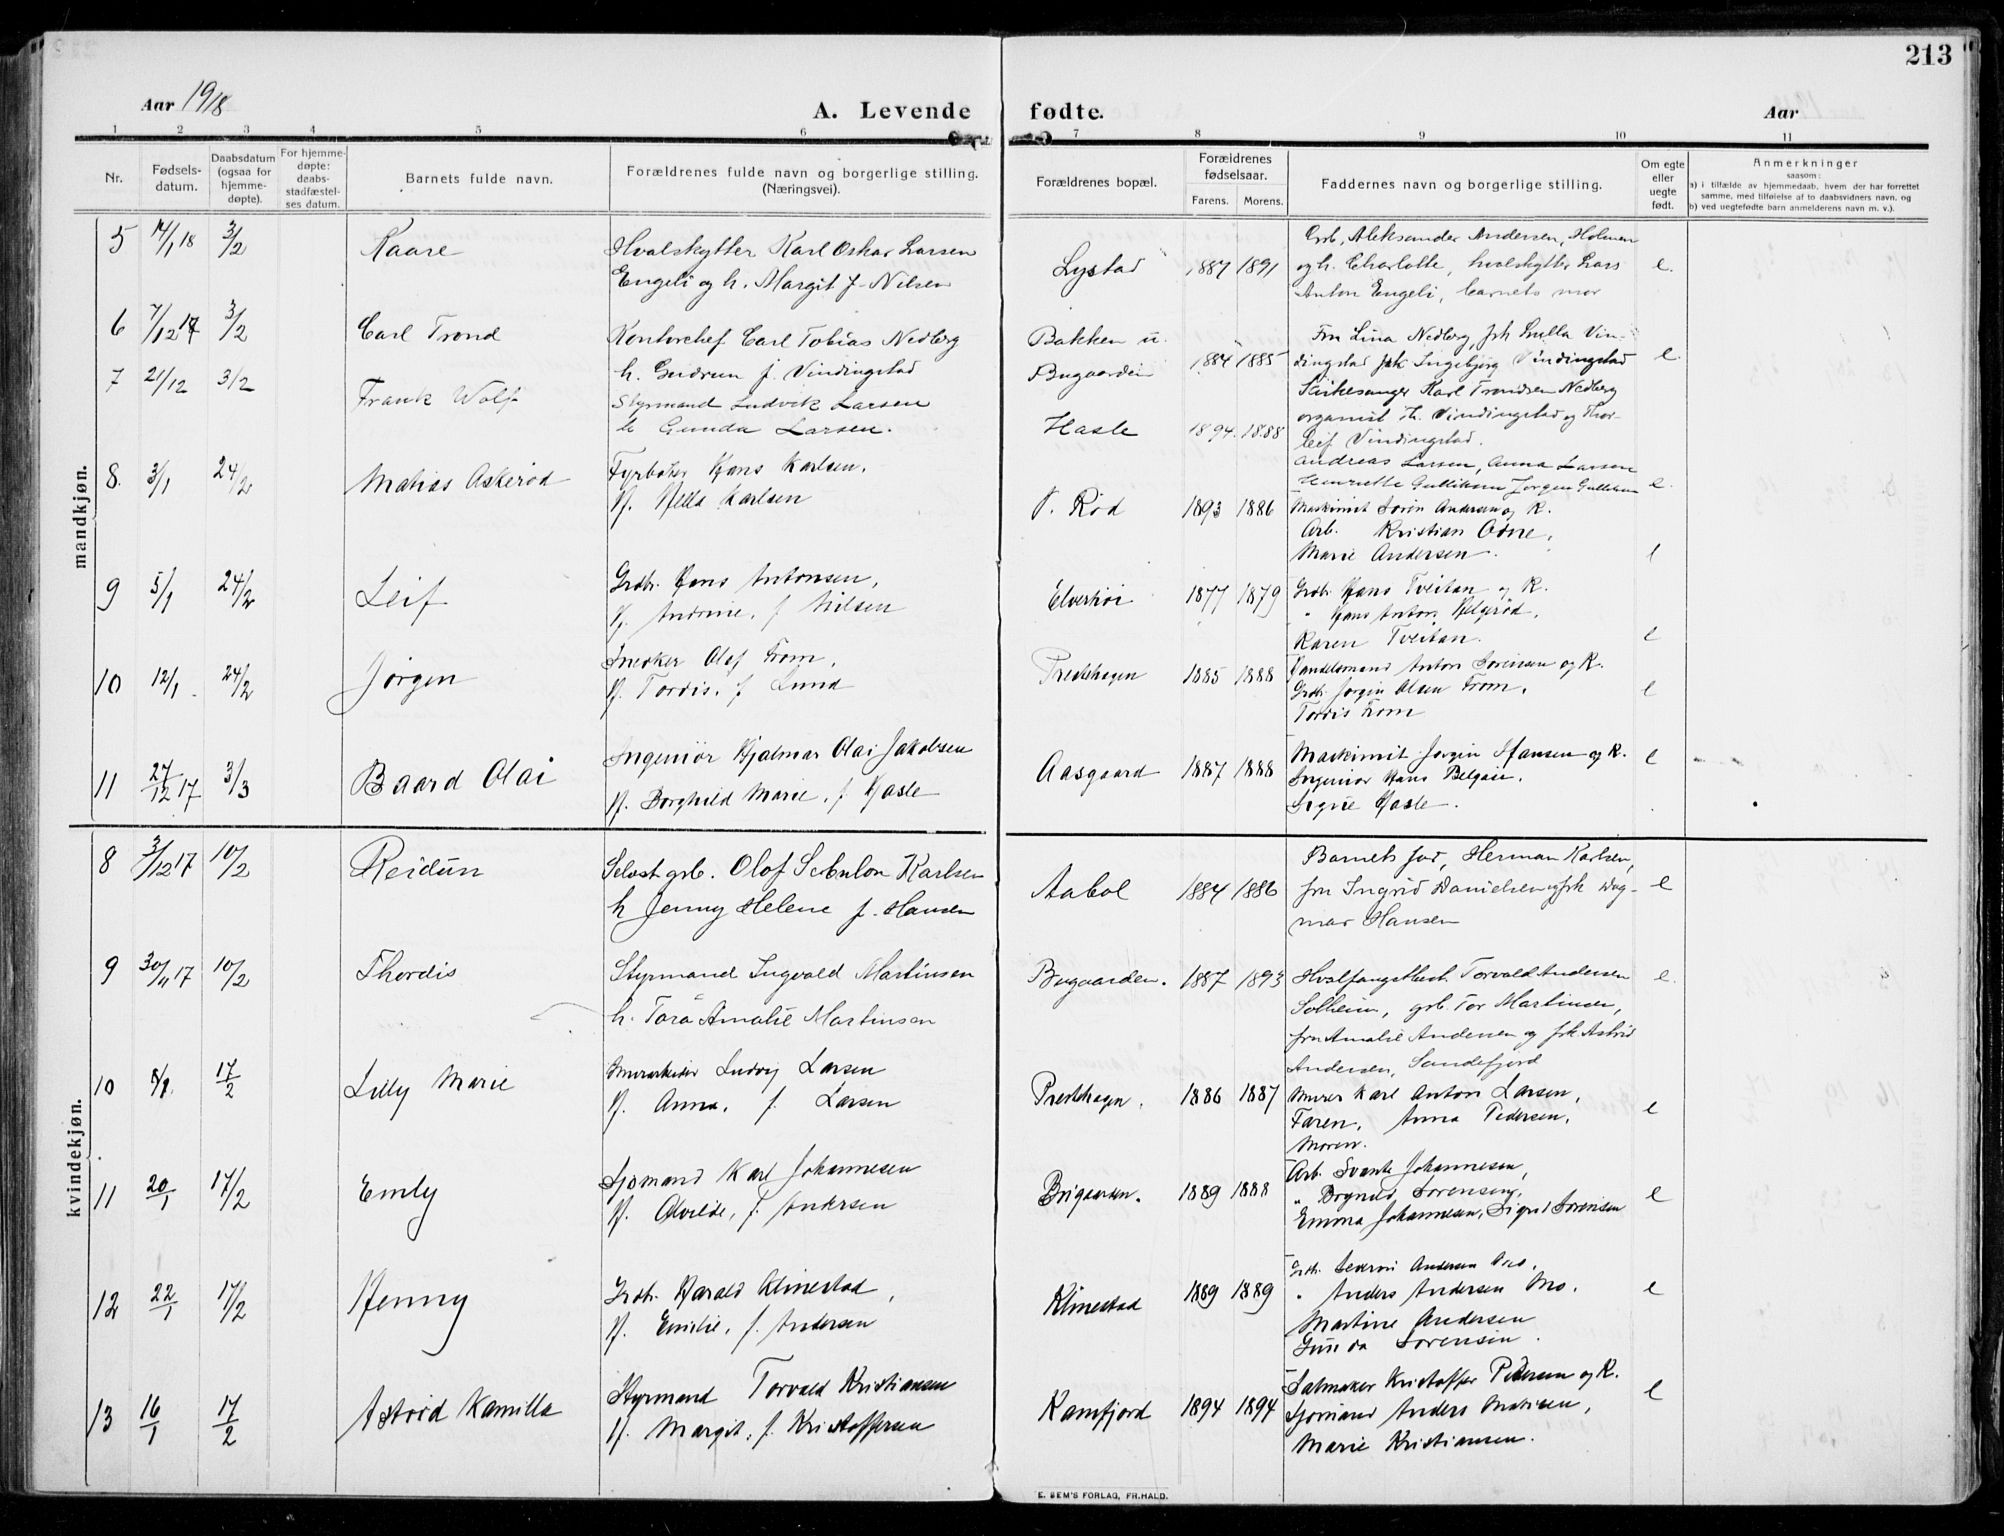 213
Aar 1918 A. Levende fødte. Aar
1 2 3 4 5 6 7 8 9 10 11
Nr. Fødsels-datum. Daabsdatum (ogsaa for hjemme-døpte). For hjemme-døpte: daabs-stadfæstel-ses datum. Barnets fulde navn. Forældrenes fulde navn og borgerlige stilling. (Næringsvei). Forældrenes bopæl. Forældrenes fødselsaar. Farens. Morens. Faddernes navn og borgerlige stilling. Om egte eller uegte født. Anmerkninger saasom: a) i tilfælde av hjemmedaab, hvem der har forrettet samme, med tilføielse af to daabsvidners navn, og b) ved uegtefødte barn anmelderens navn m. v.).
mandkjøn.
5 14/1 18 3/2 Kaare Hvalskytter Karl Oskar Larsen Lystad 1887 1891 Grb. Aleksander Andersen, Holmen e.
Engeli og h. Margit f. Nilsen og h. Charlotte, hvalskytter Lars
Anton Engeli, barnets mor
6 7/12 17 3/2 Carl Trond Kontorchef Carl Tobias Nedberg Bakken u. 1884 1885 Fru Lina Nedberg, frk Lulla Vin- e.
h. Gudrun f. Vindingstad Bugaarden dingstad frk Ingebjørg Vindingstad
Kirkesanger Karl Trondsen Nedberg
organist Th. Vindingstad og Thor-
leif Vindingstad.
7 21/12 3/2 Frank Wolf Styrmand Ludvik Larsen Hasle 1894. 1888 Andreas Larsen, Anna Larsen e.
h Gunda Larsen. Henriette Gulliksen Jørgen Gulliksen
8. 3/1 24/2 Matias Askerød Fyrbøter Hans Karlsen, V. Rød 1893 1886 Maskinist Sørin Andersen og K. e
H. Hella Karlsen Arb. Kristian Odne,
Marie Andersen.
9 5/1 24/2 Leif Grdbr. Hans Antonsen, Elverhøi 1877 1879 Grdbr. Hans Tveitan og K. e
H. Andrine, f Nilsen " Hans Anton Helgerød,
Karen Tveitan.
10 12/1 24/2 Jørgen Snedker Olaf From, Prestehagen 1885 1888 Handelsmand Anton Sørensen og K. e
H. Tordis, f Lund Grdb. Jørgen Olsen From,
Tordis From
11 27/12 17 3/3 Baard Olai Ingeniør Hjalmar Olai Jakobsen Aasgaard 1887 1888 Maskinist Jørgen Hansen og K. e
H. Borghild Marie, f Hasle Ingeniør Hans
Signe Hasle.
kvindekjøn.
8 3/12 17 10/2 Reidun Selvst grb. Olof Sebulon Karlsen Aabol 1884 1886 Barnets far, Herman Karlsen, e
h Jenny Helene f. Hansen fru Ingrid Danielsen og frk Dag-
mar Hansen
9 30/11 17 10/2 Thordis Styrmand Ingvald Martinsen Bugaarden. 1887 1893 Hvalfangstbest. Torvald Andersen e.
h. Tora Amalie Martinsen Solheim, grb. Tor Martinsen,
fru Amalie Andersen og frk. Astrid
Andersen, Sandefjord
10 8/1 17/2 Lilly Marie Murarbeider Ludvig Larsen Prestehagen. 1886 1887 Murer Karl Anton Larsen, e
H. Anna, f. Larsen Faren, Anna Pedersen,
Moren.
11 20/1 17/2 Emly Sjømand Karl Johannesen Bugaarden. 1889 1888 Arb. Svante Johannesen, e
H. Alvilde, f. Andersen " Sørensen,
Emma Johannesen, Sigrid Sørensen
12 22/1 17/2 Henny Grdbr. Harald Klinestad, Klinestad 1889 1889 Grdb. Severin Andersen Mo, e
H. Emilie, f. Andersen " Anders Andersen Mo.
Martine Andersen
Gunda Sørensen.
13 16/1 17/2 Astrid Kamilla Styrmand Torvald Kristiansen Kamfjord 1894 1894 Salmaker Kristoffer Pedersen og K. e
H. Margit, f. Kristoffersen Sjømand Anders Matisen,
Marie Kristiansen.
E. SEM'S FORLAG, FR.HALD.